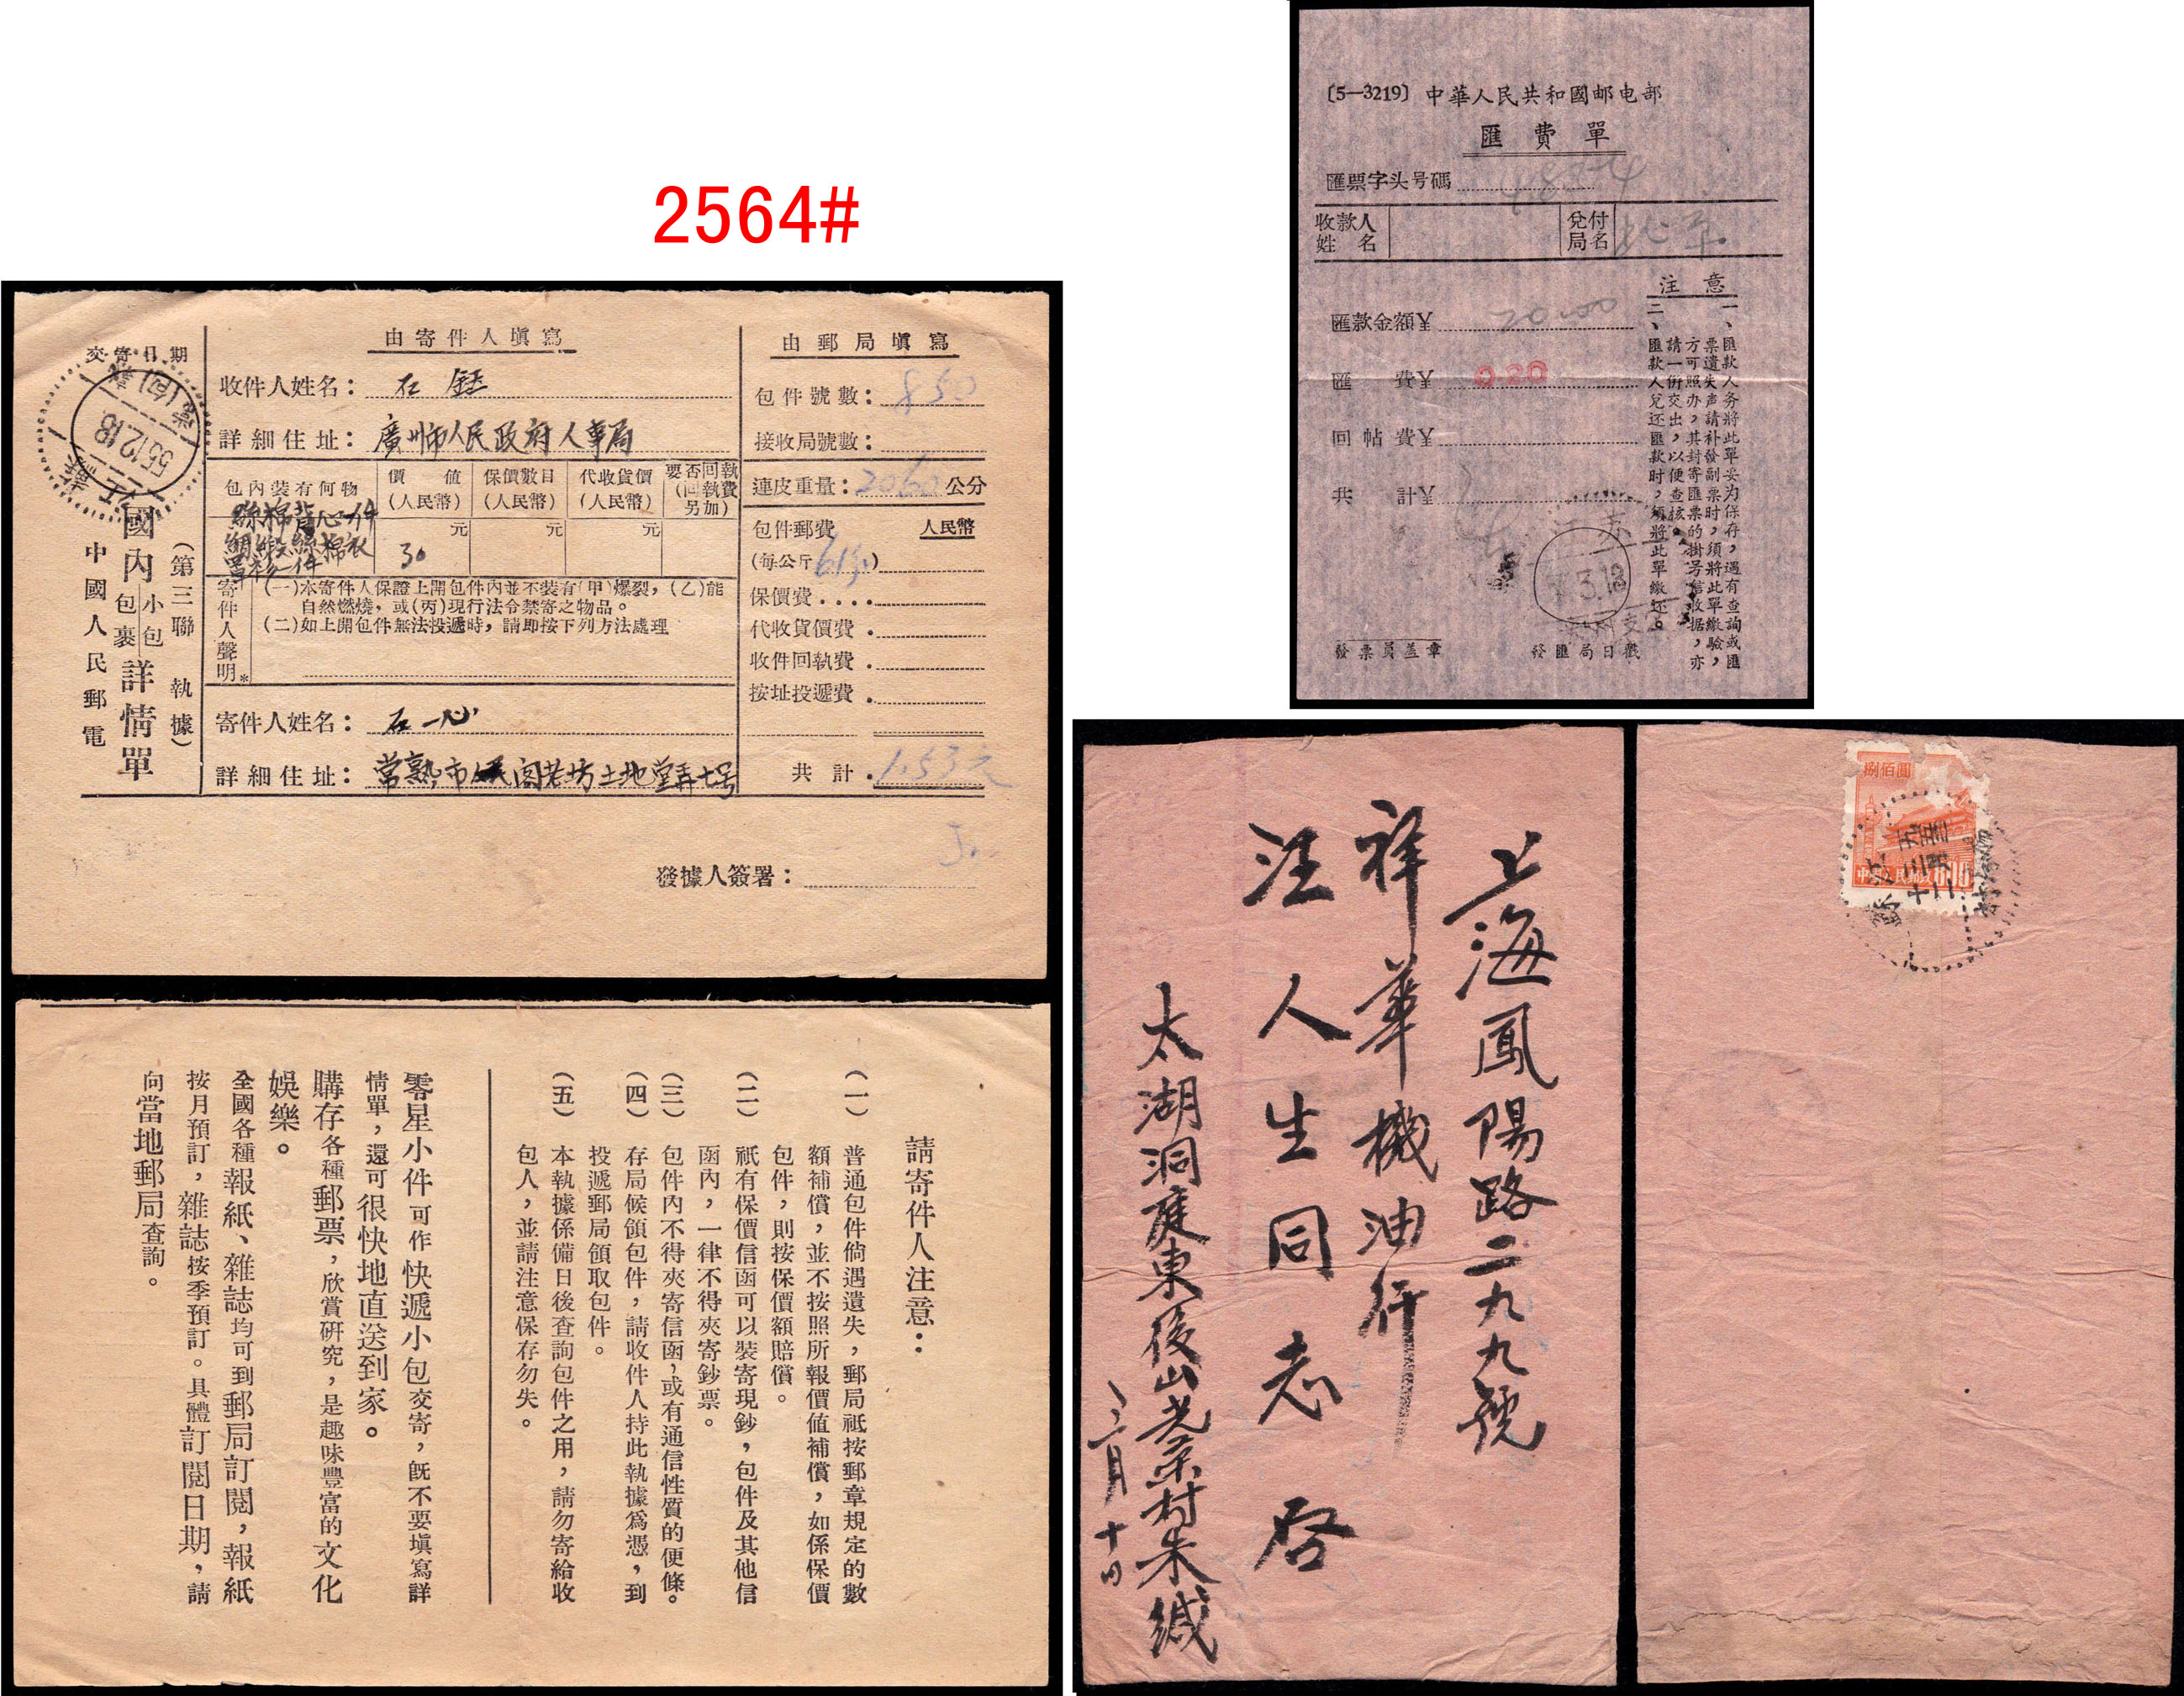 2564#
交寄日期
江蘇
55.12.18
常熟
(第三聯 執據)
國內小包包裹詳情單
中國人民郵電
由寄件人填寫
收件人姓名: 石鈺
詳細住址: 廣州市人民政府人事局
包內裝有何物
價值(人民幣)
保價數目(人民幣)
代收貨價(人民幣)
要否回執(回執費另加)
絲棉背心一件
綢緞絲棉衣
單衫一件
30 元
元
元
寄件人聲明*
(一)本寄件人保證上開包件內並不裝有(甲)爆裂,(乙)能自然燃燒,或(丙)現行法令禁寄之物品。
(二)如上開包件無法投遞時,請即按下列方法處理
寄件人姓名: 石一心
詳細住址: 常熟市閣老坊土地堂弄七号
由郵局填寫
包件號數: 850
接收局號數:
連皮重量: 2060 公分
包件郵費 人民幣
(每公斤 61分)
保價費....
代收貨價費.
收件回執費.
按址投遞費.
共計. 1.53元
發據人簽署:
請寄件人注意:
(一) 普通包件倘遇遺失,郵局祇按郵章規定的數
額補償,並不按照所報價值補償,如係保價
包件,則按保價額賠償。
(二) 祇有保價信函可以裝寄現鈔,包件及其他信
函內,一律不得夾寄鈔票。
(三) 包件內不得夾寄信函,或有通信性質的便條。
(四) 存局候領包件,請收件人持此執據爲憑,到
投遞郵局領取包件。
(五) 本執據係備日後查詢包件之用,請勿寄給收
包人,並請注意保存勿失。
零星小件可作快遞小包交寄,既不要填寫詳
情單,還可很快地直送到家。
購存各種郵票,欣賞研究,是趣味豐富的文化
娛樂。
全國各種報紙、雜誌均可到郵局訂閱,報紙
按月預訂,雜誌按季預訂。具體訂閱日期,請
向當地郵局查詢。
〔5—3219〕中華人民共和國邮电部
匯費單
匯票字头号碼
收款人姓名
兌付局名 北京
注意
一、匯款人务將此單妥为保存,遇有查詢或匯
票遺失声請补發副票时,須將此單繳驗,
方可照办,其封寄匯票的掛号信收据,亦
請一併交出,以便查核。
二、匯款人兌还匯款时,須將此單繳还。
匯款金額¥ 20.00
匯費¥ 0.20
回帖費¥
共計¥
發票員盖章
發匯局日戳
3.13
上海鳳陽路二九九號
祥華機油行
汪人生同志啓
太湖洞庭東後山光榮村朱緘
三月十日
捌佰圓
中國人民郵政
800